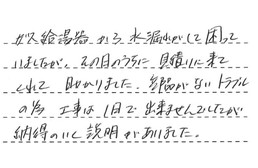 ガス給湯器から水漏れがして困って
いましたが、その日のうちに見積りに来て
くれて助かりました。経験がないトラブル
の為工事は1日で出来ませんでしたが
納得のいく説明がありました。